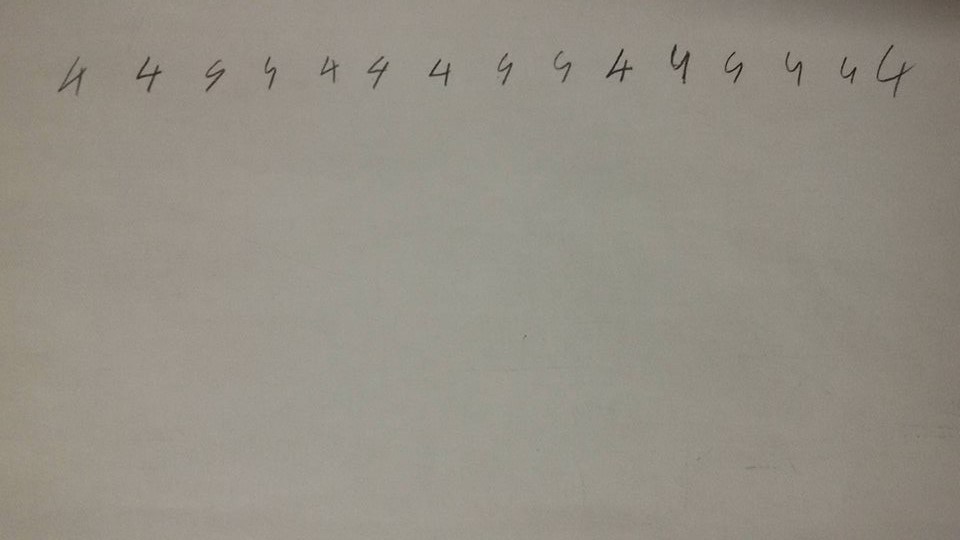 4 4 4 4 4 4 4 4 4 4 4 4 4 4 4